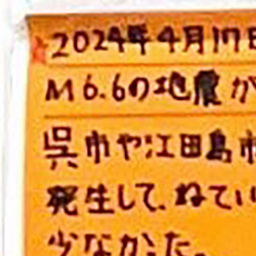 2024年4月17日
M6.6の地震が
呉市や江田島市
発生して、ねてい
少なかった。